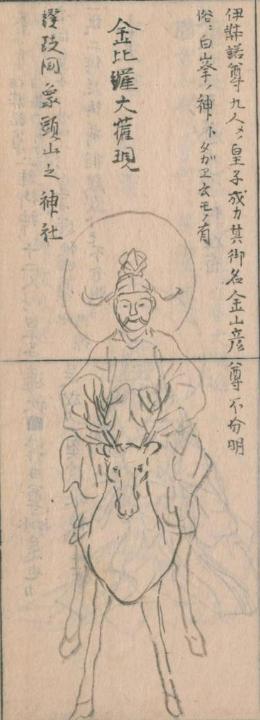 伊弉諾尊九人メノ皇子成カ其御名金山彦尊不分明
俗ニ白山峯ノ神ト
金比羅大権現
讃政國象頭山之神社